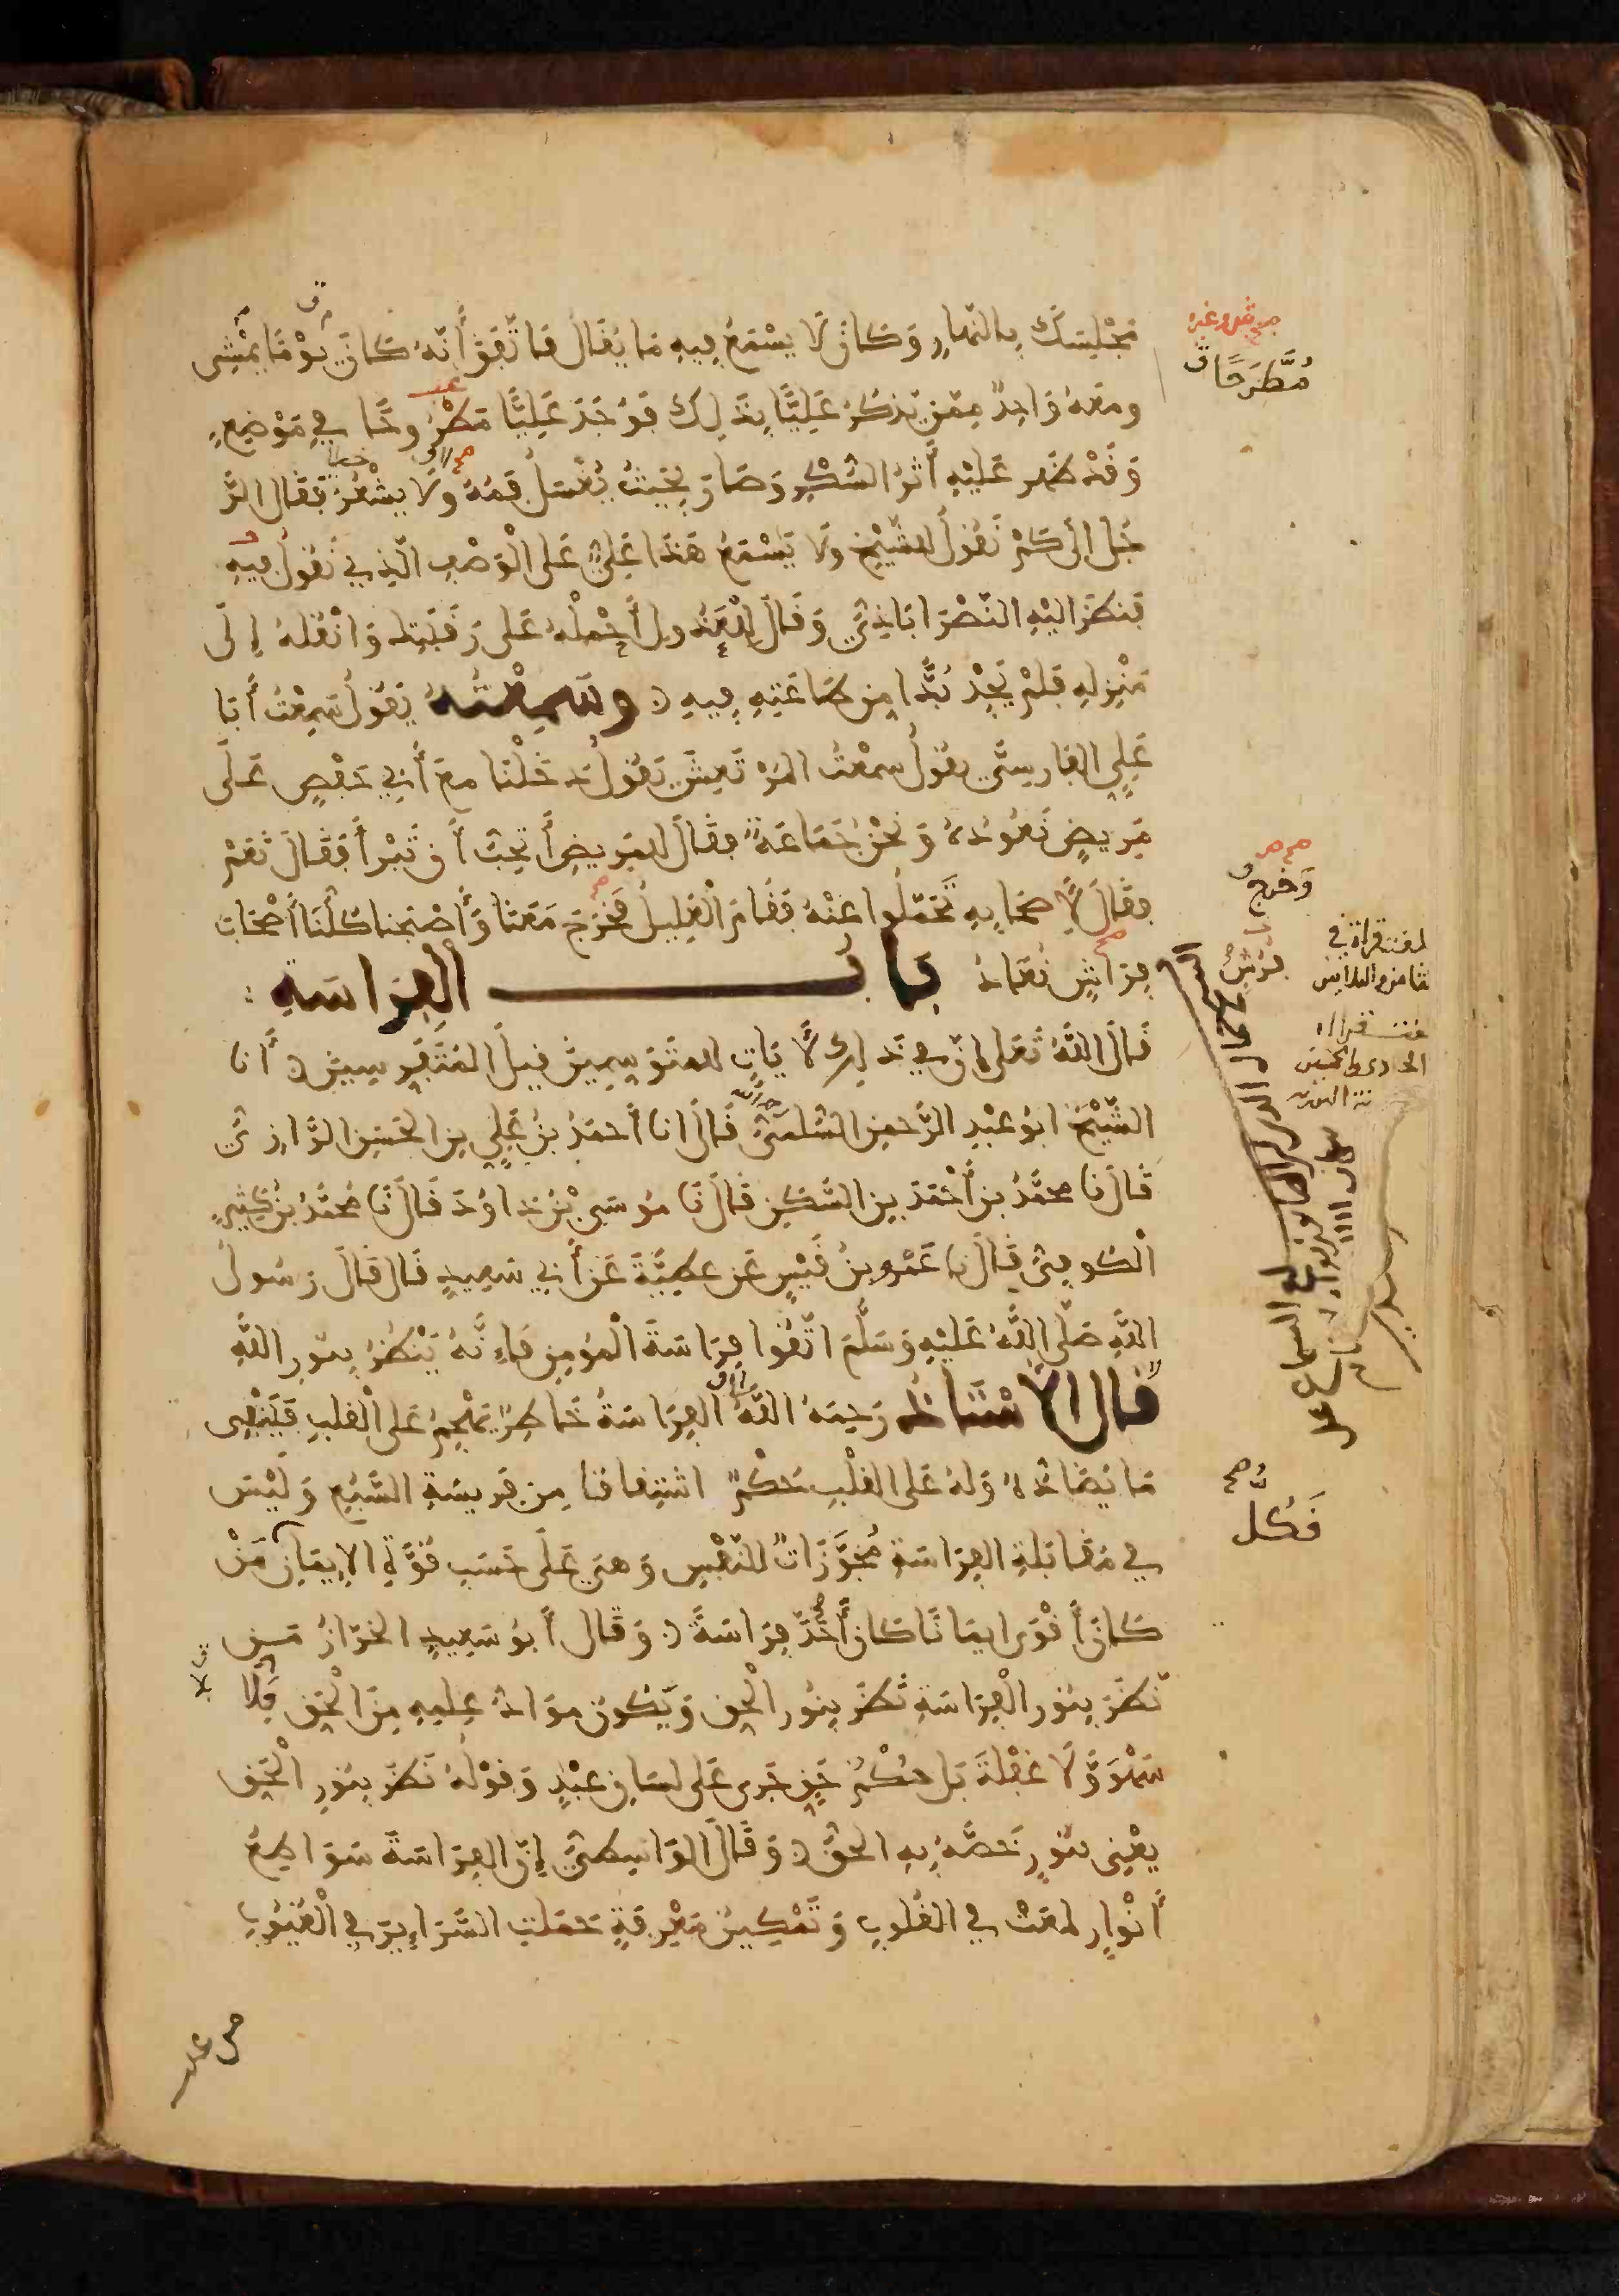 مَجْلِسَكَ بِالنَّهارِ وَكَانَ لَا يَسْمَعُ فِيهِ مَا يُقَالُ فَاتَّفَقَ أَنَّهُ كَانَ يَوْمًا يَمْشِى
ومَعَهُ وَاحِدٌ مِمَّنْ يَذْكُرُ عَلِيًّا بِذَلِكَ فَوُجَدَ عَلِيًّا مَطْرُوحًا فِي مَوْضِعٍ
وَقَدْ ظَهر عَلَيْهِ أَثَرُ السُّكْرِ وَصَارَ بِحَيْثُ يُغْسَلُ فَمُهُ وَلَا يشْعُرُ فَقَال الرَّ
جُل إلى كَمْ نَقُولُ للشَّيْخِ ولَا يَسْمَعُ هَذَا عَلِيٌّ عَلى الْوَصْفِ الَّذِي نَقُولُ فِيهِ
فَنظَرَ اليْهِ النَّصْرَ ابَاذِيُّ وَقَالَ لِلْعَذُولِ أحْمِلْهُ عَلى رَقَبَتِك وَانْقُلهُ إلَى
مَنْزِلِهِ فَلَمْ يَجِدْ بُدًّا مِن طَاعَتِهِ فِيهِ وَسَمِعْتُهُ يَقُولُ سَمِعْتُ أَبَا
عَلِي الفَارِسِيَّ يقُولُ سمِعْتُ المُرْتَعِشَ يَقُولُ دَخَلْنَا مَعَ أَبِي حَفْصٍ عَلَى
مَرِيضٍ نَعُودُهُ وَنَحْنُ جَمَاعَةٌ فقَالَ للمَرِيضِ أَتحِبُّ أَنْ تَبْرأَ فَقَالَ نَعَمْ
فقَالَ لِأَصْحَابِهِ تَحَمَّلُوا عَنْهُ فَقَامَ الْعَلِيلُ فَخَرَجَ مَعَنَا وَأَصْبَحْنا كُلُّنَا أَصْحَابَ
فِرَاشٍ نُعَادُ بَابُ الفِرَاسَةِ
قَالَ اللَّهُ تَعَلى إِنَّ فِي ذَلِكَ لَأيَاتٍ للمُتَوَسِمِينَ قيلَ المُتَفَرِسِينَ أَنا
الشَّيْخُ ابُو عَبْدِ الرَّحمنِ السُّلَمِيُّ قَالَ انا أَحمَدُ بْنُ عَلِي بنِ الحَسَنِ الرَّازِيُّ
قَالَ نا محَمَّدُ بنُ أَحْمَدَ بنِ السَّكَنِ قَالَ نَا مُوسَى بْنُ دَاوُدَ قَالَ نَا مُحَمَّدُ بْنُ كَثِيرٍ
الْكُوفِيُّ قَالَ نا عَمْرو بنُ قَيْسٍ عَن عَطِيَّةَ عَنْ أَبِي سَعِيدٍ قَالَ قَالَ رَسُولُ
اللَّهِ صَلَّى اللَّهُ عَلَيْهِ وَسَلَّمَ اتَّقُوا فِرَاسَةَ الْمُؤمِنِ فَإِنَّهُ يَنْظُرُ بِنُورِ اللَّهِ
قَال الأُسْتَاذُ رَحِمَهُ اللَّهُ الفِرَاسَةُ خَاطِرٌ يَهْجِمُ عَلَى الْقَلبِ فَيَنْفِى
مَا يُضَادُّهُ وَلَهُ عَلى القَلْبِ حُكْمٌ اشْتِقَاقًا مِن فَرِيسَةِ السَّبُعِ وَلَيْسَ
فِي مُقَابَلَةِ الفِرَاسَةِ مُجَوَّزَاتٌ للنَّفْسِ وَهيَ عَلَى حَسَبِ قُوَّةِ الإِيمَانِ مَنْ
كَانَ أَقْوَى ايمَانًا كَانَ أَحَدَّ فِرَاسَةً وَقَال أَبُو سَعِيدٍ الخَرَّازُ مَن
نَظَرَ بِنُورِ الْفِرَاسَةِ نَظَرَ بِنُورِ الْحَقِ وَيَكُونُ مَوَادُّ عِلمِهِ مِنَ الْحَقِ فَلَا
سَهْوَ وَّلَا غَفْلَةَ بَل حُكْمُ حَقٍ جَرى عَلى لسَانِ عَبْدٍ وَقَوْلُهُ نَظَرَ بِنُورِ الْحَقِ
يعْنِى بنُورٍ خَصَّهُ بِهِ الحَقُّ وَقَالَ الوَاسِطِيُّ إنَّ الفِرَاسَةَ سَوَاطِعُ
أَنْوَارٍ لمَعَتْ فِي القُلُوبِ وَتَمْكِينُ مَعْرِفَةٍ حَمَلَتِ السَّرَايِرَ فِي الْغُيُوبِ
مُطَّرَحًا
وَخَرج
فُرُشٍ
فَكُل